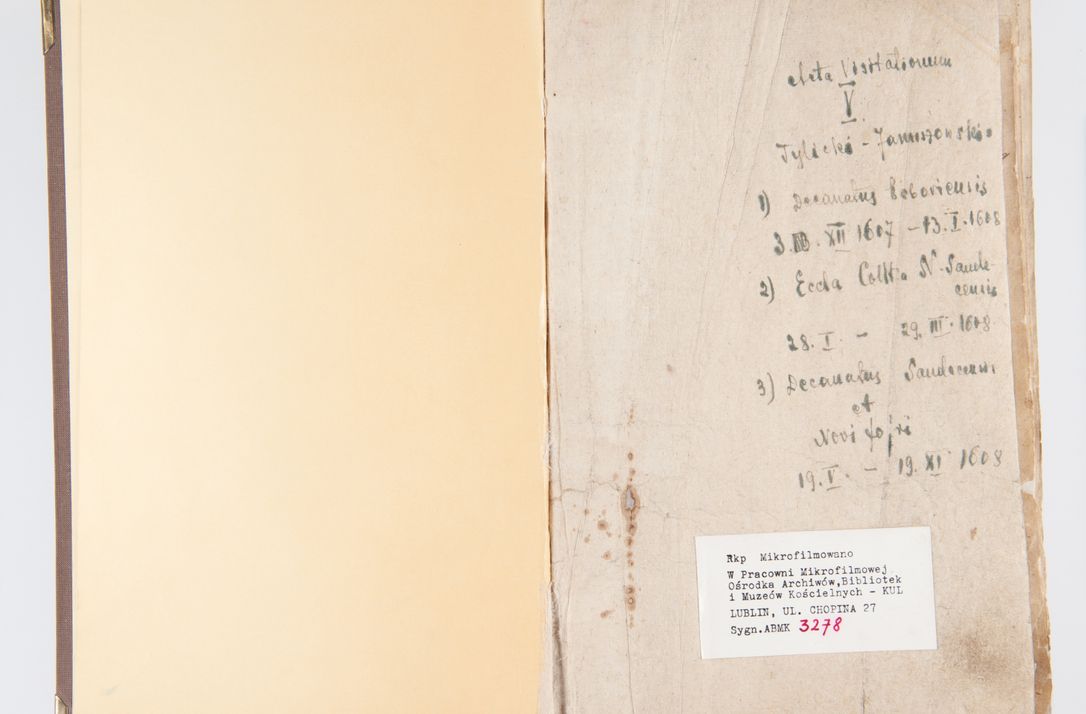 Acta Visitationum
V.
Tylicki - Januszowski.
1) Decanatus Boboviensis
3. XII 1607 - 13. I. 1608
2) Eccla Collta N. Sande-
censis
28. I. - 29. III. 1608.
3) Decanatus Sandecensis
et
Novi fori
19. V. - 19. XI 1608
Rkp Mikrofilmowano
W Pracowni Mikrofilmowej
Ośrodka Archiwów,Bibliotek
i Muzeów Kościelnych - KUL
LUBLIN, UL. CHOPINA 27
Sygn.ABMK 3278